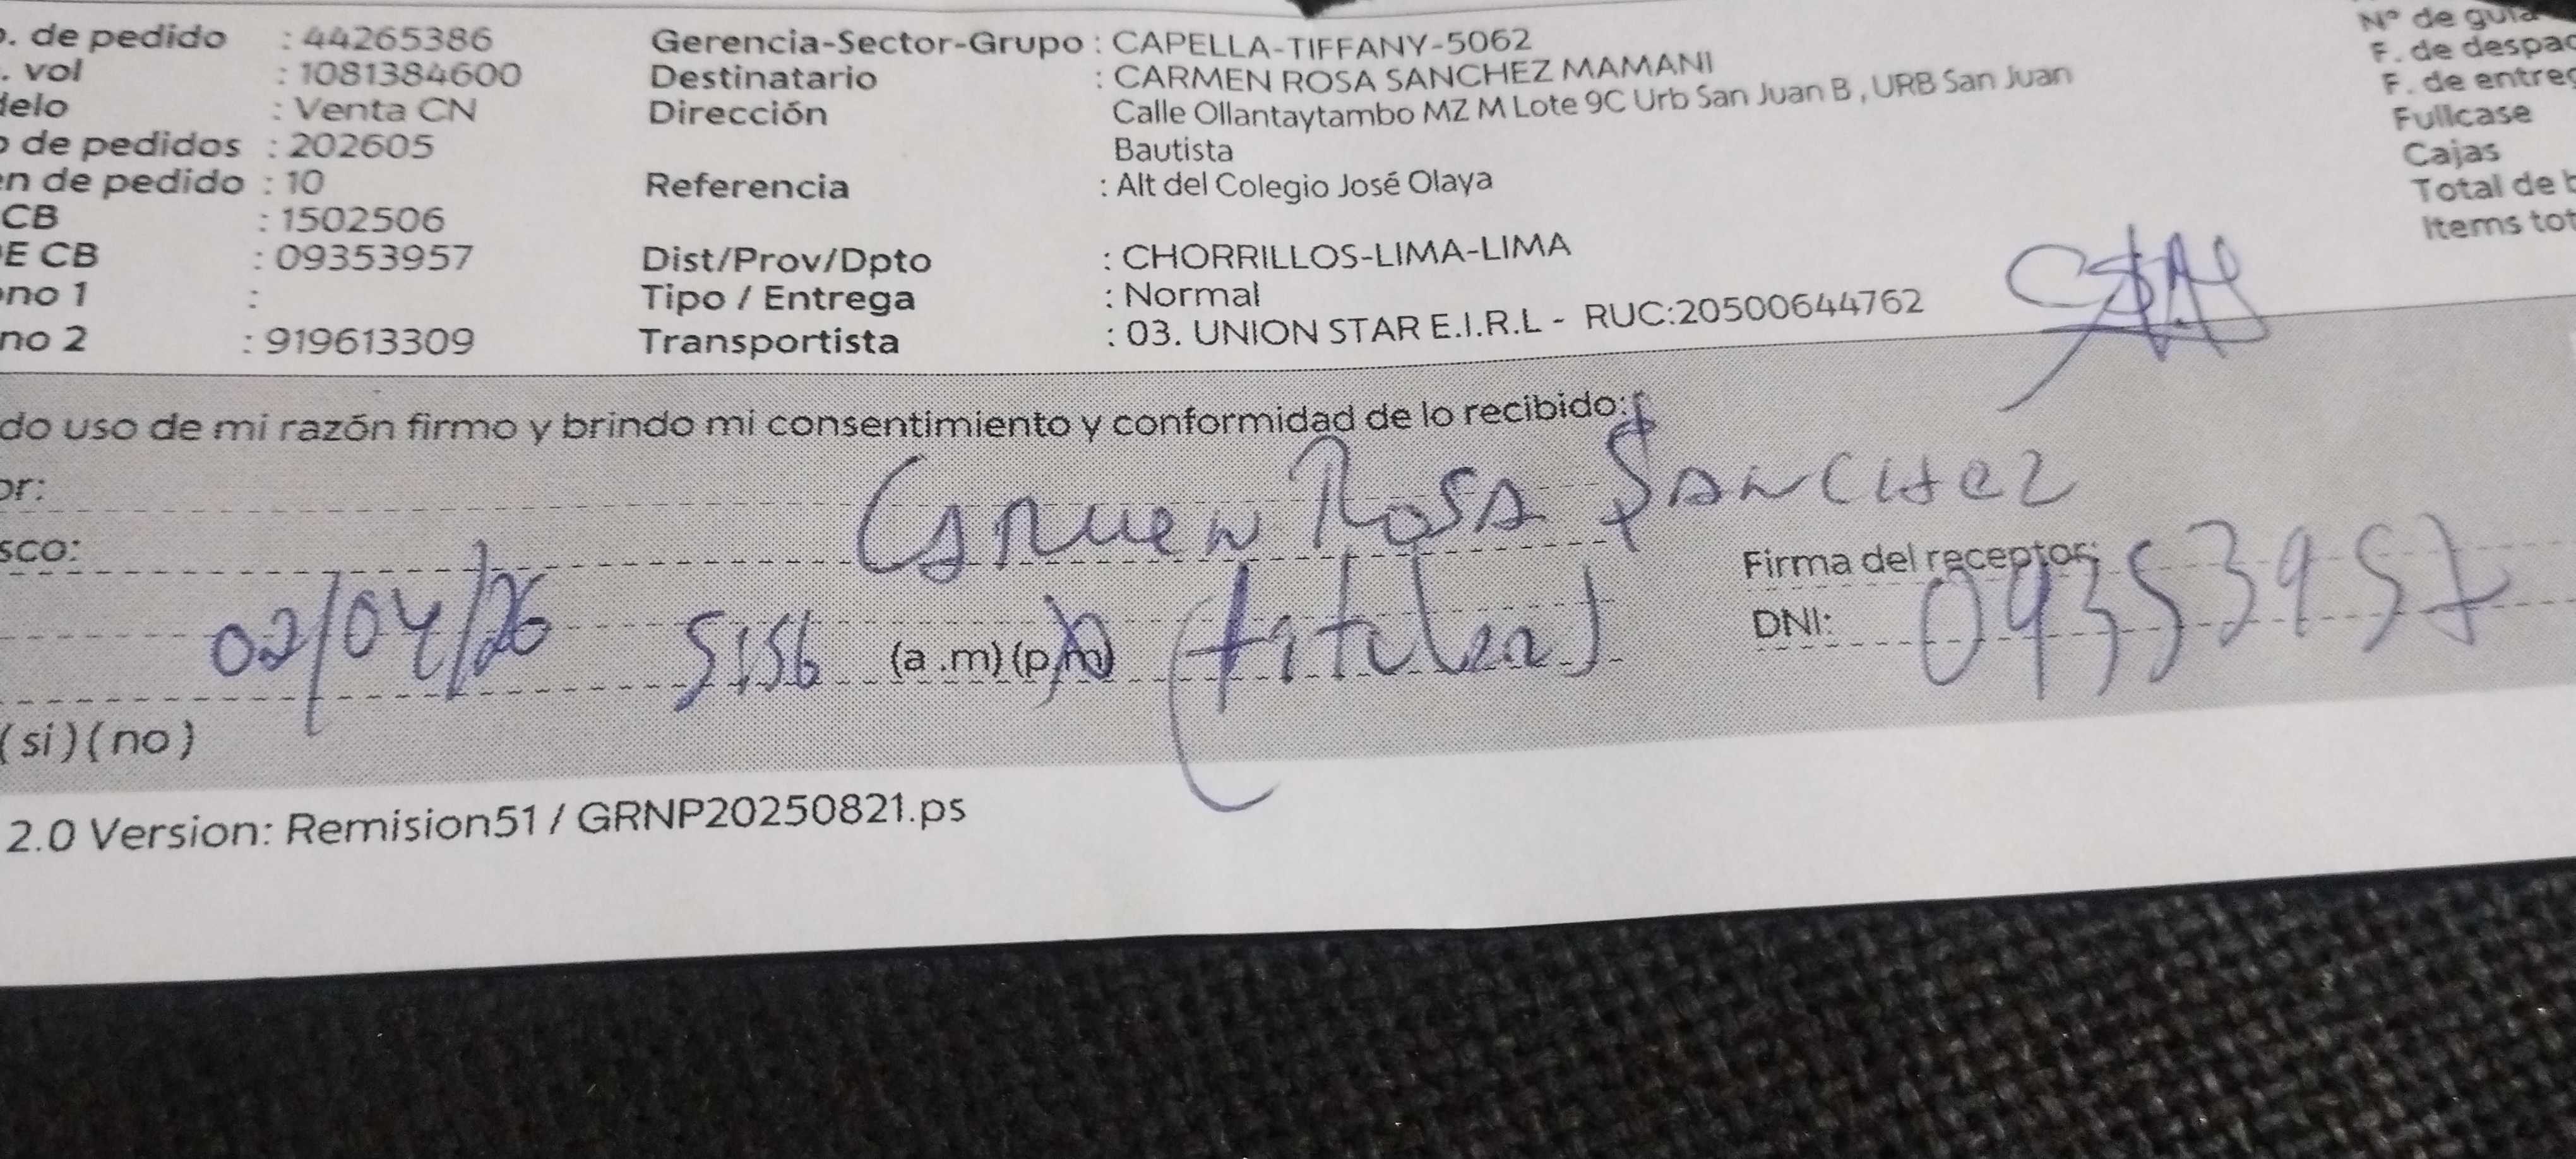 . de pedido : 44265386 Gerencia-Sector-Grupo : CAPELLA-TIFFANY-5062 N° de guia
. vol : 1081384600 Destinatario : CARMEN ROSA SANCHEZ MAMANI F. de despac
elo : Venta CN Dirección Calle Ollantaytambo MZ M Lote 9C Urb San Juan B , URB San Juan F. de entreg
o de pedidos : 202605 Bautista Fullcase
en de pedido : 10 Referencia : Alt del Colegio José Olaya Cajas
CB : 1502506 Total de b
E CB : 09353957 Dist/Prov/Dpto : CHORRILLOS-LIMA-LIMA Items tot
ono 1 : Tipo / Entrega : Normal
no 2 : 919613309 Transportista : 03. UNION STAR E.I.R.L - RUC:20500644762
do uso de mi razón firmo y brindo mi consentimiento y conformidad de lo recibido:
or: Carmen Rosa Sanchez
sco: Firma del receptor:
02/04/26 5:56 (a .m) (p.m) (titular) DNI: 09353957
(si) (no)
2.0 Version: Remision51 / GRNP20250821.ps